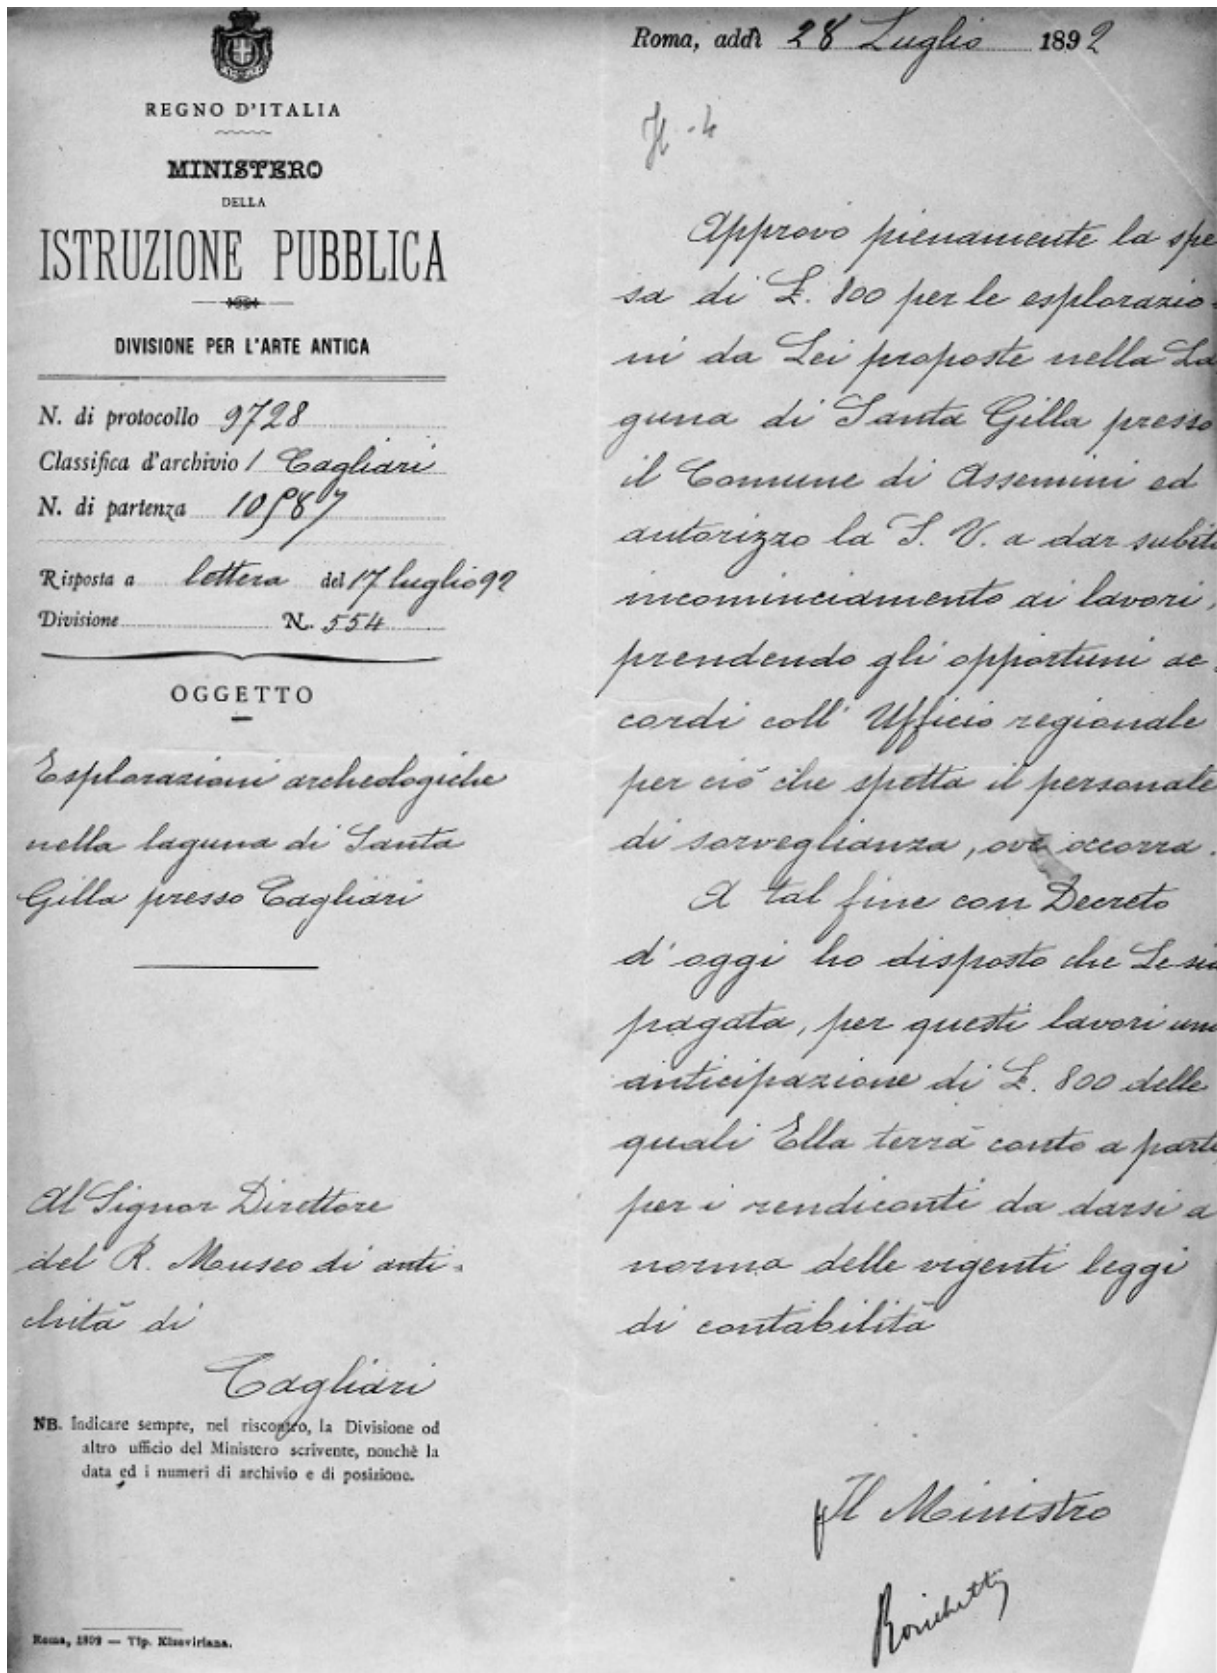 REGNO D'ITALIA
MINISTERO
DELLA
ISTRUZIONE PUBBLICA
DIVISIONE PER L'ARTE ANTICA
N. di protocollo 9728
Classifica d'archivio 1 Cagliari
N. di partenza 10587
Risposta a lettera del 17 luglio 92
Divisione N. 554
OGGETTO
Esplorazioni archeologiche
nella laguna di Santa
Gilla presso Cagliari
Al Signor Direttore
del R. Museo di anti-
chità di
Cagliari
NB. Indicare sempre, nel riscontro, la Divisione od
altro ufficio del Ministero scrivente, nonchè la
data ed i numeri di archivio e di posizione.
Roma, 1892 — Tip. Elzeviriana.
Roma, addì 28 Luglio 1892
Approvo pienamente la spe
sa di £. 800 per le esplorazio-
ni da Lei proposte nella La
guna di Santa Gilla presso
il Comune di Assemini ed
autorizzo la S. V. a dar subito
incominciamento ai lavori,
prendendo gli opportuni ac-
cordi coll' Ufficio regionale
per ciò che spetta il personale
di sorveglianza, ove occorra.
A tal fine con Decreto
d'oggi ho disposto che Le sia
pagata, per questi lavori una
anticipazione di £. 800 delle
quali Ella terrà conto a parte
per i rendiconti da darsi a
norma delle vigenti leggi
di contabilità
Il Ministro